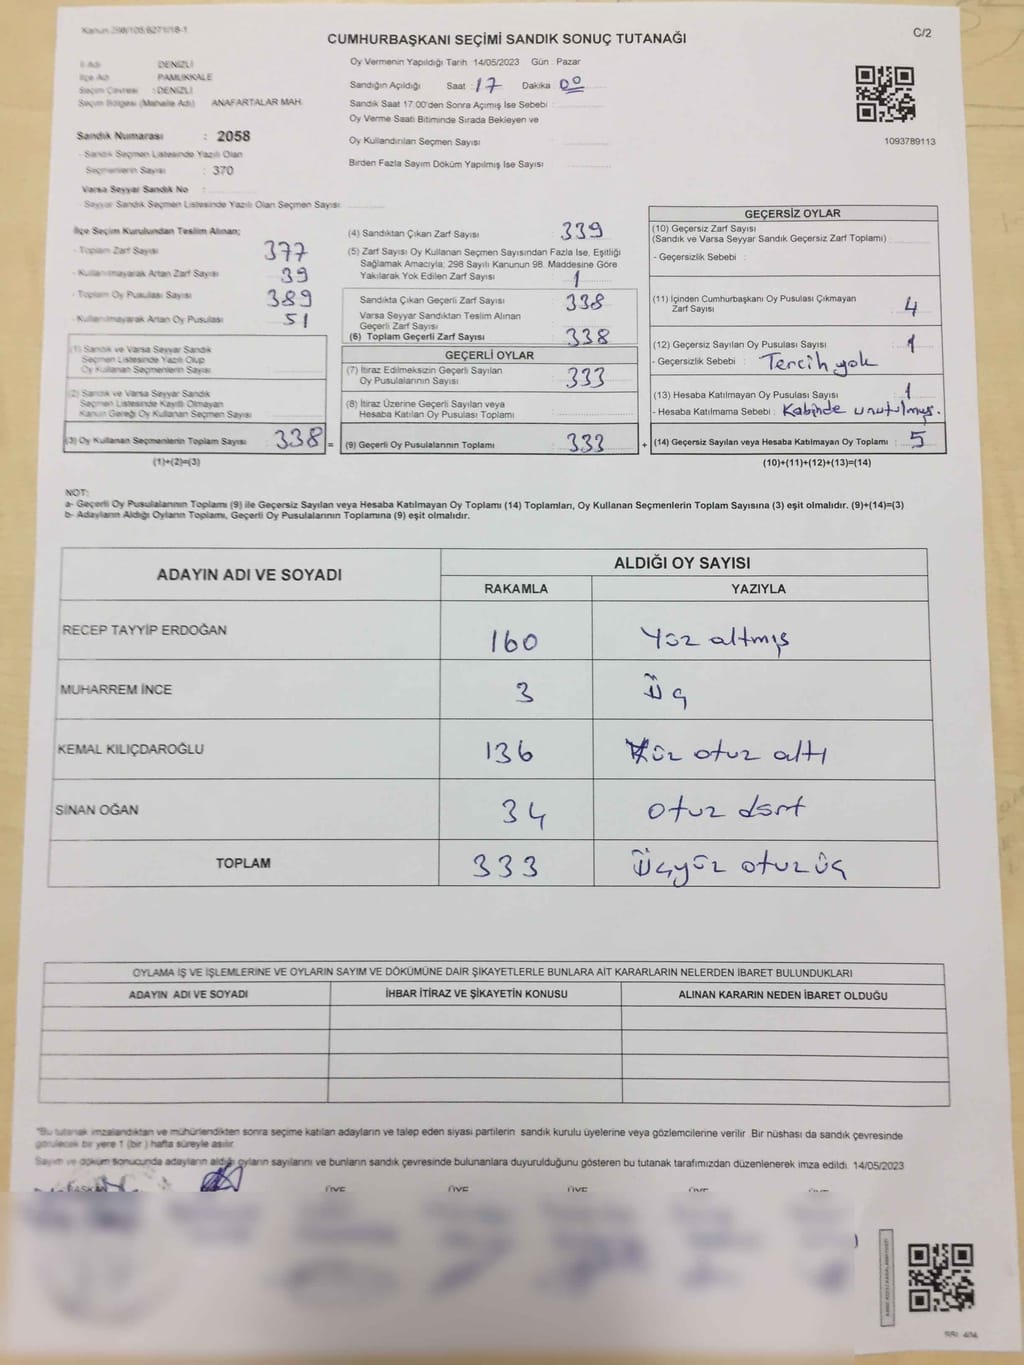 Kanun 298/105,6271/18-1
CUMHURBAŞKANI SEÇİMİ SANDIK SONUÇ TUTANAĞI
C/2
İl Adı DENİZLİ
İlçe Adı PAMUKKALE
Seçim Çevresi : DENİZLİ
Seçim Bölgesi (Mahalle Adı) ANAFARTALAR MAH.
Sandık Numarası : 2058
- Sandık Seçmen Listesinde Yazılı Olan
Seçmenlerin Sayısı : 370
Varsa Seyyar Sandık No :
- Seyyar Sandık Seçmen Listesinde Yazılı Olan Seçmen Sayısı:
Oy Vermenin Yapıldığı Tarih : 14/05/2023 Gün : Pazar
Sandığın Açıldığı Saat : 17 Dakika : 00
Sandık Saat 17:00'den Sonra Açımış İse Sebebi :
Oy Verme Saati Bitiminde Sırada Bekleyen ve
Oy Kullandırılan Seçmen Sayısı :
Birden Fazla Sayım Döküm Yapılmış İse Sayısı :
1093789113
İlçe Seçim Kurulundan Teslim Alınan;
- Toplam Zarf Sayısı 377
- Kullanılmayarak Artan Zarf Sayısı 39
- Toplam Oy Pusulası Sayısı 389
- Kullanılmayarak Artan Oy Pusulası 51
(1) Sandık ve Varsa Seyyar Sandık
Seçmen Listesinde Yazılı Olup
Oy Kullanan Seçmenlerin Sayısı
(2) Sandık ve Varsa Seyyar Sandık
Seçmen Listesinde Kayıtlı Olmayan
Kanun Gereği Oy Kullanan Seçmen Sayısı
(3) Oy Kullanan Seçmenlerin Toplam Sayısı : 338 =
(1)+(2)=(3)
(4) Sandıktan Çıkan Zarf Sayısı 339
(5) Zarf Sayısı Oy Kullanan Seçmen Sayısından Fazla İse, Eşitliği
Sağlamak Amacıyla; 298 Sayılı Kanunun 98. Maddesine Göre
Yakılarak Yok Edilen Zarf Sayısı : 1
Sandıkta Çıkan Geçerli Zarf Sayısı : 338
Varsa Seyyar Sandıktan Teslim Alınan
Geçerli Zarf Sayısı :
(6) Toplam Geçerli Zarf Sayısı : 338
GEÇERLİ OYLAR
(7) İtiraz Edilmeksizin Geçerli Sayılan
Oy Pusulalarının Sayısı : 333
(8) İtiraz Üzerine Geçerli Sayılan veya
Hesaba Katılan Oy Pusulası Toplamı :
(9) Geçerli Oy Pusulalarının Toplamı : 333 +
GEÇERSİZ OYLAR
(10) Geçersiz Zarf Sayısı
(Sandık ve Varsa Seyyar Sandık Geçersiz Zarf Toplamı) :
- Geçersizlik Sebebi :
(11) İçinden Cumhurbaşkanı Oy Pusulası Çıkmayan
Zarf Sayısı : 4
(12) Geçersiz Sayılan Oy Pusulası Sayısı : 1
- Geçersizlik Sebebi : Tercih yok
(13) Hesaba Katılmayan Oy Pusulası Sayısı : 1
- Hesaba Katılmama Sebebi : Kabinde unutulmuş.
(14) Geçersiz Sayılan veya Hesaba Katılmayan Oy Toplamı : 5
(10)+(11)+(12)+(13)=(14)
NOT:
a- Geçerli Oy Pusulalarının Toplamı (9) ile Geçersiz Sayılan veya Hesaba Katılmayan Oy Toplamı (14) Toplamları, Oy Kullanan Seçmenlerin Toplam Sayısına (3) eşit olmalıdır. (9)+(14)=(3)
b- Adayların Aldığı Oyların Toplamı, Geçerli Oy Pusulalarının Toplamına (9) eşit olmalıdır.
ADAYIN ADI VE SOYADI ALDIĞI OY SAYISI
RAKAMLA YAZIYLA
RECEP TAYYİP ERDOĞAN 160 Yüz altmış
MUHARREM İNCE 3 Üç
KEMAL KILIÇDAROĞLU 136 Yüz otuz altı
SİNAN OĞAN 34 otuz dört
TOPLAM 333 Üçyüz otuzüç
OYLAMA İŞ VE İŞLEMLERİNE VE OYLARIN SAYIM VE DÖKÜMÜNE DAİR ŞİKAYETLERLE BUNLARA AİT KARARLARIN NELERDEN İBARET BULUNDUKLARI
ADAYIN ADI VE SOYADI İHBAR İTİRAZ VE ŞİKAYETİN KONUSU ALINAN KARARIN NEDEN İBARET OLDUĞU
*Bu tutanak imzalandıktan ve mühürlendikten sonra seçime katılan adayların ve talep eden siyasi partilerin sandık kurulu üyelerine veya gözlemcilerine verilir. Bir nüshası da sandık çevresinde
görülecek bir yere 1 (bir ) hafta süreyle asılır.
Sayım ve döküm sonucunda adayların aldığı oyların sayılarını ve bunların sandık çevresinde bulunanlara duyurulduğunu gösteren bu tutanak tarafımızdan düzenlenerek imza edildi. 14/05/2023
BAŞKAN ÜYE ÜYE ÜYE ÜYE ÜYE